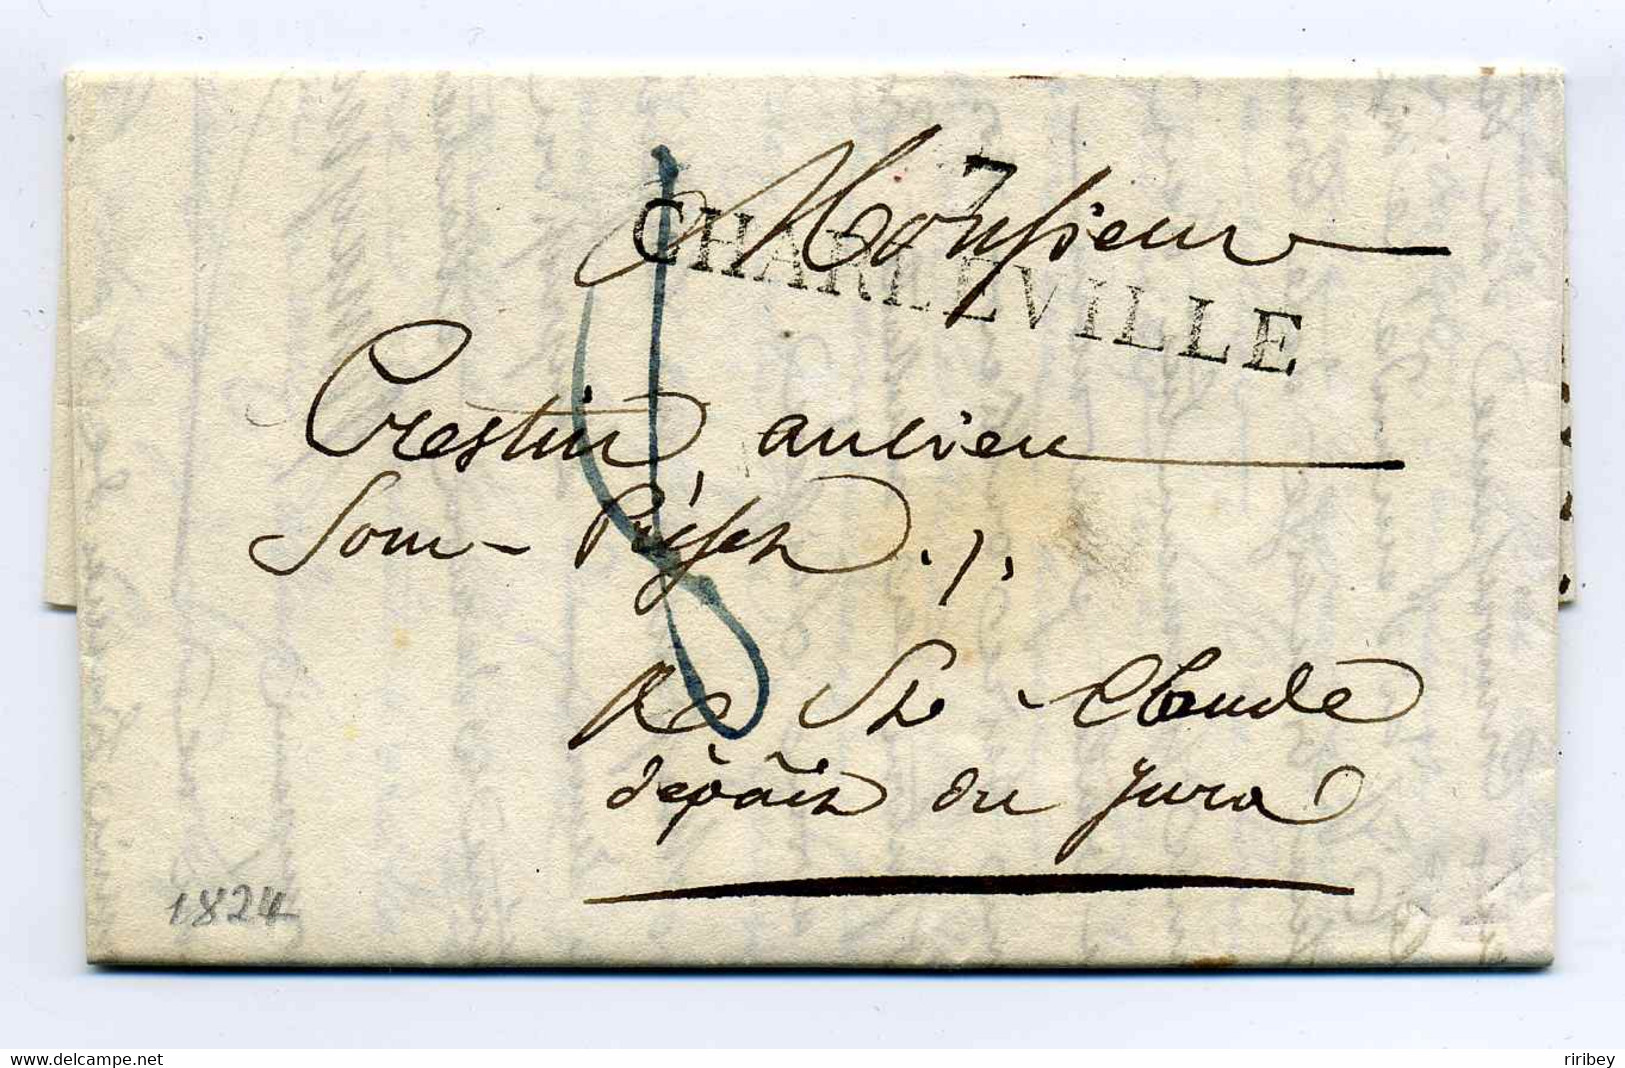 7
CHARLEVILLE
Monsieur
Crestin, ancien
Sous-Préfet
De St Claude
dép.t du Jura
8
1824
www.delcampe.net
riribey